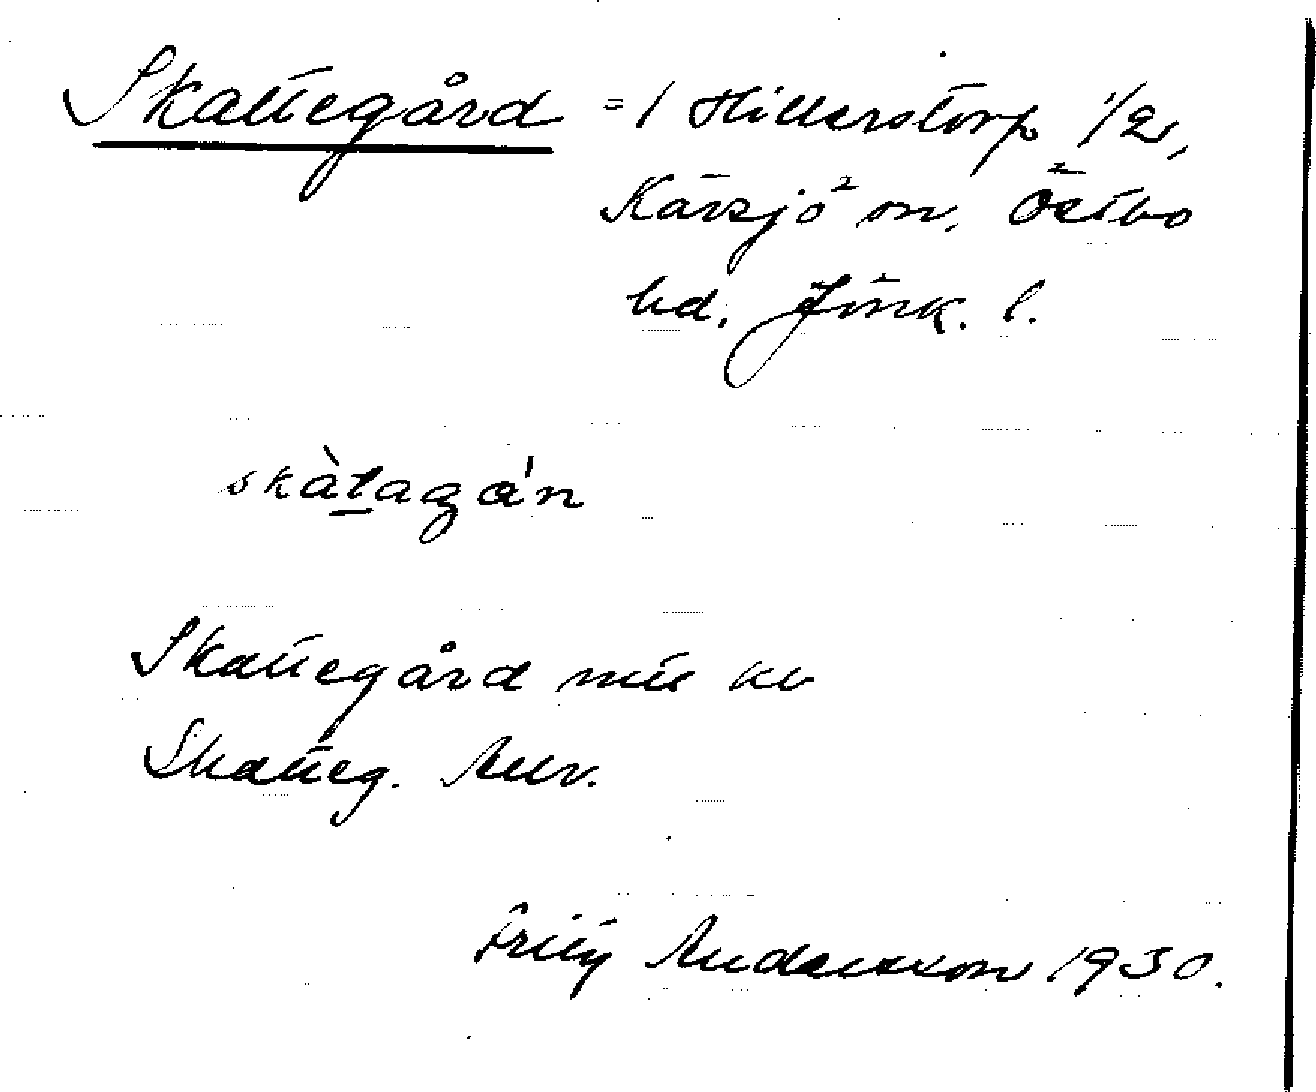 Skattegård = 1 Hillerstorp 1/2,
Kävsjö sn, Östbo
hd, Jönk. l.
skàtagá'n
Skattegård mts
Skatteg.
Fritz Andersson 1930.